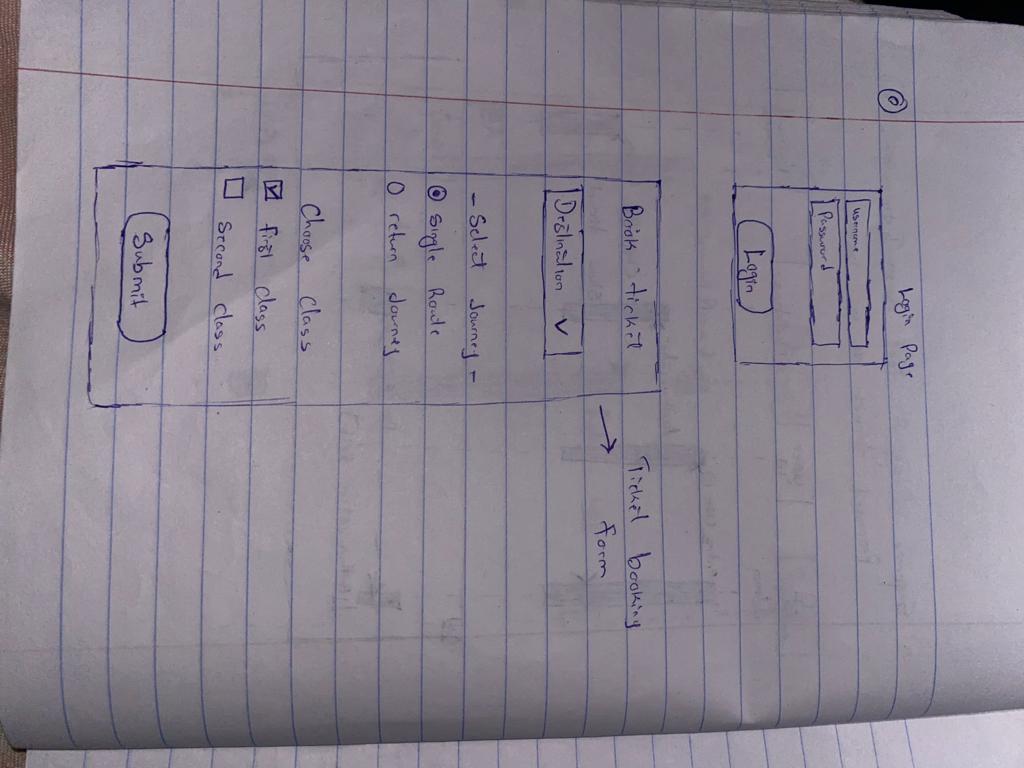 Login Page
username
Password
Login
Book ticket
Ticket booking
form
Destination
- Select Journey -
Single Route
return Journey
Choose Class
first class
Second class
Submit